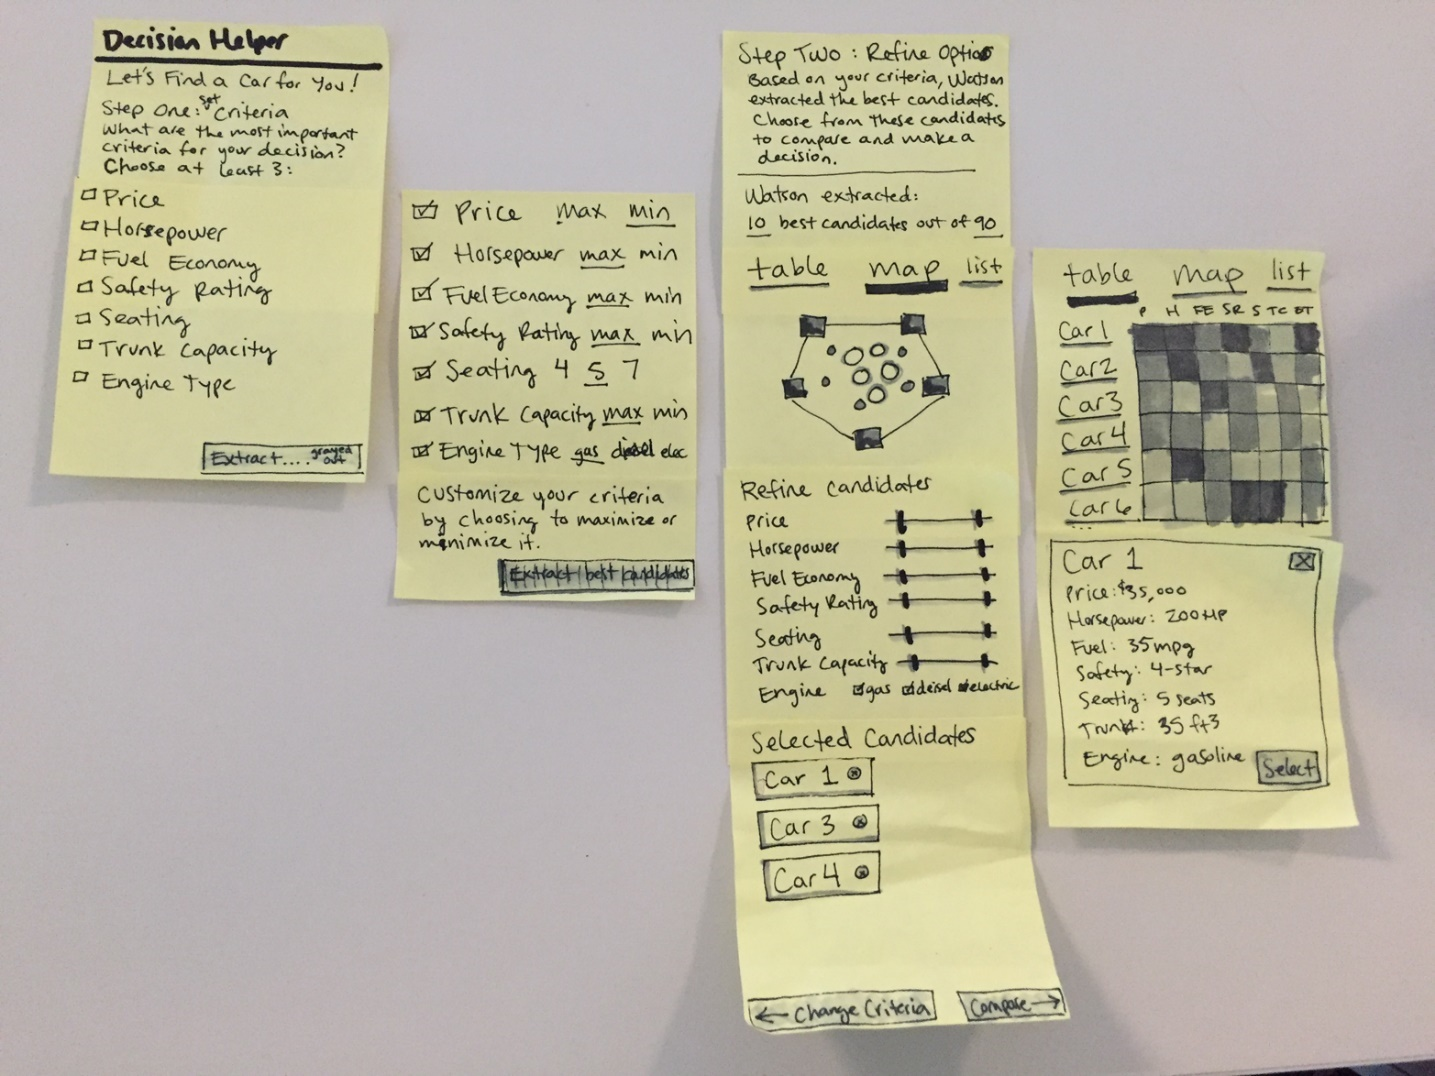 Decision Helper
Let's Find a Car for You!
Step One: set Criteria
What are the most important
criteria for your decision?
Choose at least 3:
Price
Horsepower
Fuel Economy
Safety Rating
Seating
Trunk Capacity
Engine Type
Extract.... grayed out
Price max min
Horsepower max min
Fuel Economy max min
Safety Rating max min
Seating 4 5 7
Trunk Capacity max min
Engine Type gas diesel elec
Customize your criteria
by choosing to maximize or
minimize it.
Extract best candidates
Step Two: Refine Options
Based on your criteria, Watson
extracted the best candidates.
Choose from these candidates
to compare and make a
decision.
Watson extracted:
10 best candidates out of 90
table map list
Refine Candidates
Price
Horsepower
Fuel Economy
Safety Rating
Seating
Trunk Capacity
Engine gas deisel electric
Selected Candidates
Car 1
Car 3
Car 4
← Change Criteria
Compare →
table map list
P H FE SR S TC ET
Car 1
Car 2
Car 3
Car 4
Car 5
Car 6
...
Car 1
Price: $35,000
Horsepower: 200 HP
Fuel: 35mpg
Safety: 4-star
Seating: 5 seats
Trunk: 35 ft3
Engine: gasoline
Select